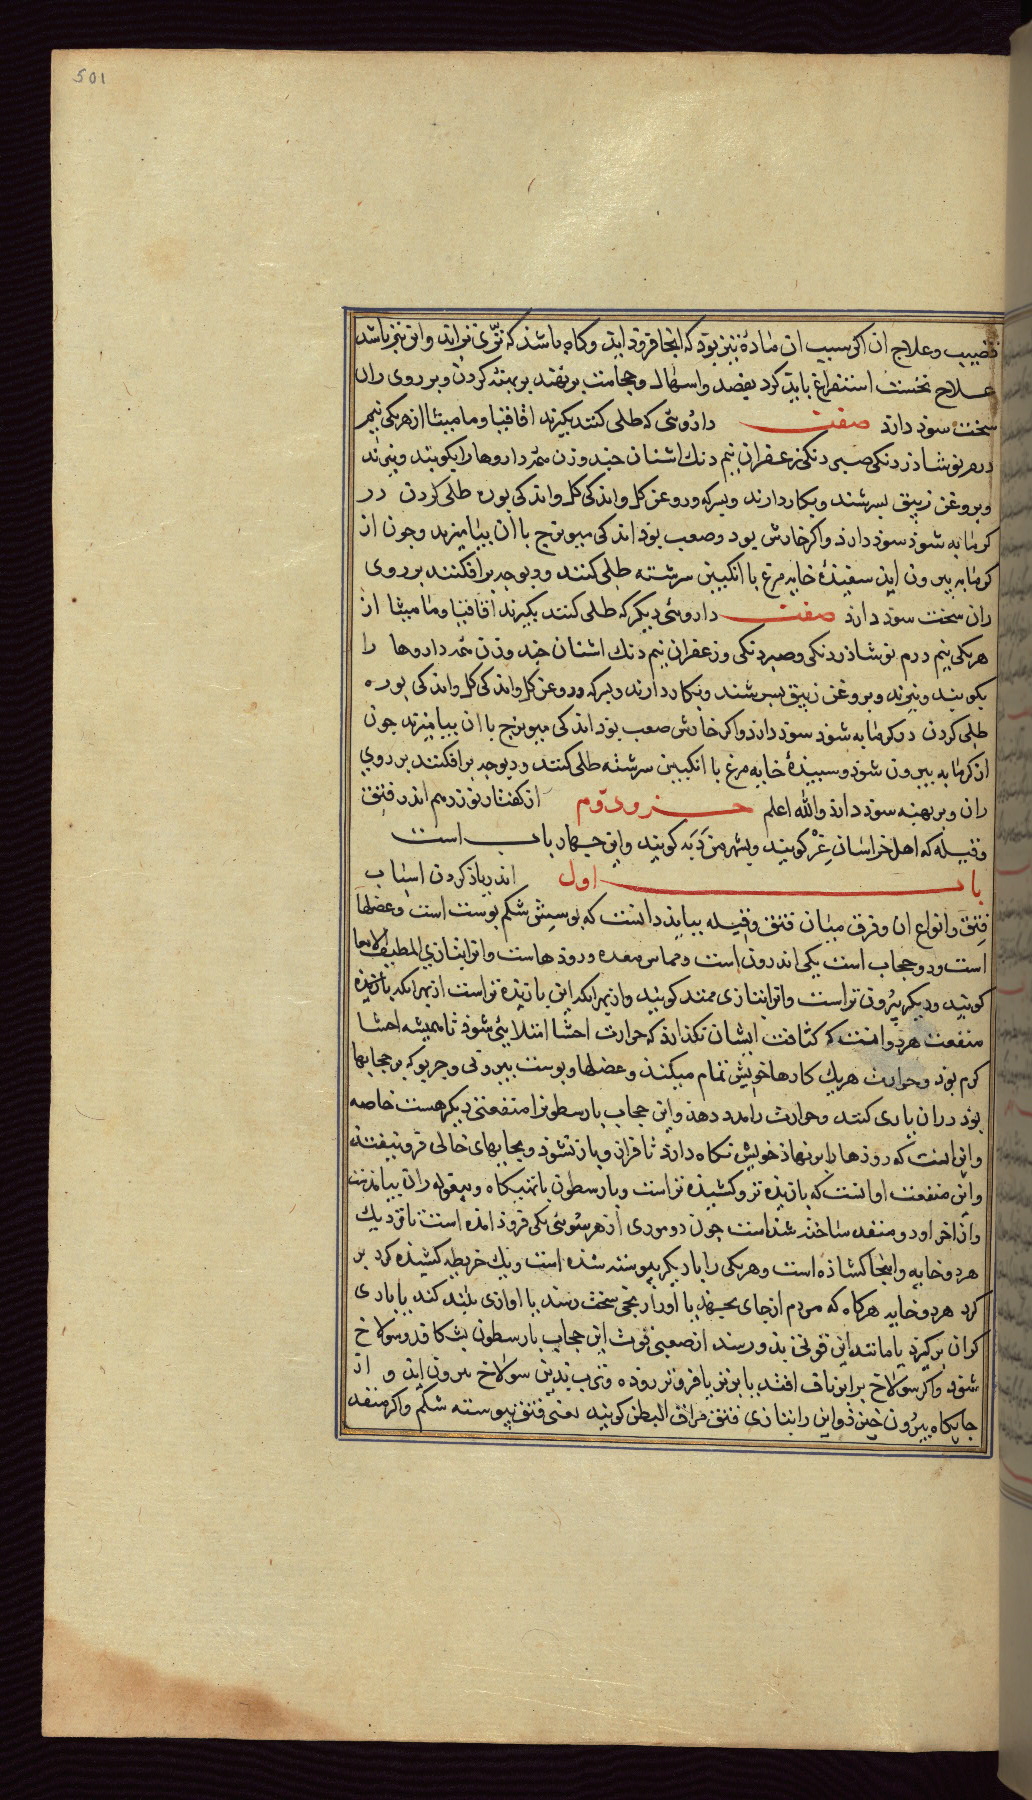 501
قضیب وعلاج ان اکر سبب ان مادهٔ تیز بوذ که انجا فروذ ایذ وکاه باشذ که تری تراید وان تیز باشذ
علاج نخست استفراغ بایذ کرد بفصد واسهال وحجامت بر پهنه کردن وبر روی ران
سخت سوذ دارذ صفت داروئی که طلی کنند بکیرند اقاقیا ومامیثا از هریکی نیم
درم نوشاذر دنکی صبر دنکی زعفران نیم دنك اشنان چند وزن همه داروها را بکوبند وبپزند
وبروغن زیبق بسرشند وبکار دارند وبسرکه وروغن کل واندکی کل واندکی بوره طلی کردن در
کرمابه شوذ سوذ دارذ واکر خارش بود وصعب بوذ اندکی میویزج با ان بیامیزند وچون از
کرمابه بیرون ایذ سفیذهٔ خایه مرغ با انکبین سرشته طلی کنند ودیوجه برافکنند بر روی
ران سخت سوذ دارذ صفت داروئی دیکر که طلی کنند بکیرند اقاقیا ومامیثا از
هریکی نیم درم نوشاذر دنکی وصبر دنکی وزعفران نیم دنك اشنان چند وزن همه داروها را
بکوبند وبپزند وبروغن زیبق بسرشند وبکار دارند وبسرکه وروغن کل واندکی کل واندکی بوره
طلی کردن در کرمابه شوذ سوذ دارذ واکر خارش صعب بوذ اندکی میویزج با ان بیامیزند چون
از کرمابه بیرون شوذ وسبیذهٔ خایه مرغ با انکبین سرشته طلی کنند ودیوجه برافکنند بر روی
ران وبر پهنه سوذ دارذ والله اعلم جزو دوم از کفتار نوزدهم اندر فتق
وقیله که اهل خراسان غر کویند وبشهر من دبه کویند واین چهار باب است
باب اول اندر یاذ کردن اسباب
فتق وانواع ان وفرق میان فتق وقیله ببایذ دانست که پوسش شکم پوست است وعضلها
است ودو حجاب است یکی اندرون است ومماس معده وروذها است وانرا بتازی المطیف الامعا
کویند ودیکر بیرون تر است وانرا بتازی ممتد کویند وازبهر انکه این باز تیذه تر است ازبهر انکه باز تیذه
منفعت هردو انست که کثافت ایشان نکذارذ که حرارت احشا انتلایی شوذ تا همیشه احشا
کرم بوذ وحرارت هریك کارها خویش تمام میکند وعضلها وپوست بیرونی وچربو که بر حجابها
بوذ در ان یاری کنند وحرارت را مدد دهذ واین حجاب باریطون را منفعتی دیکر هست خاصه
وان انست که روذها را بر نهاذ خویش نکاه دارذ تا فراز وباز نشوذ وبجایهای خالی فرو نیفتند
واین منفعت او انست که باز تیذه تر وکشیذه تر است وباریطون بانتهیکاه وبیغوله ران بیامذست
واز اخر او دو منفذ ساخته شذاست چون دو موری از هر سوئی یکی فروذ امذه است تا نزدیك
هردو خایه وانجا کشاذه است وهریکی را با دیکر پیوسته شذه است ویك خریطه کشیذه کرد بر
کرد هردو خایه هرکاه که مردم از جای بجهذ یا او را رنجی سخت رسذ یا اوازی بلند کند یا باری
کران برکیرذ یا مانند این قوتی بذو رسذ از صعبی قوت این حجاب باریطون بشکافذ وسولاخ
شوذ واکر سولاخ بر این ناف افتذ یا برتر یا فروتر روده وثرب بذین سولاخ بیرون ایذ و از
جایکاه بیرون خیزذ واین را بتازی فتق مراق البطن کویند یعنی فتق پیوسته شکم واکر منفذ